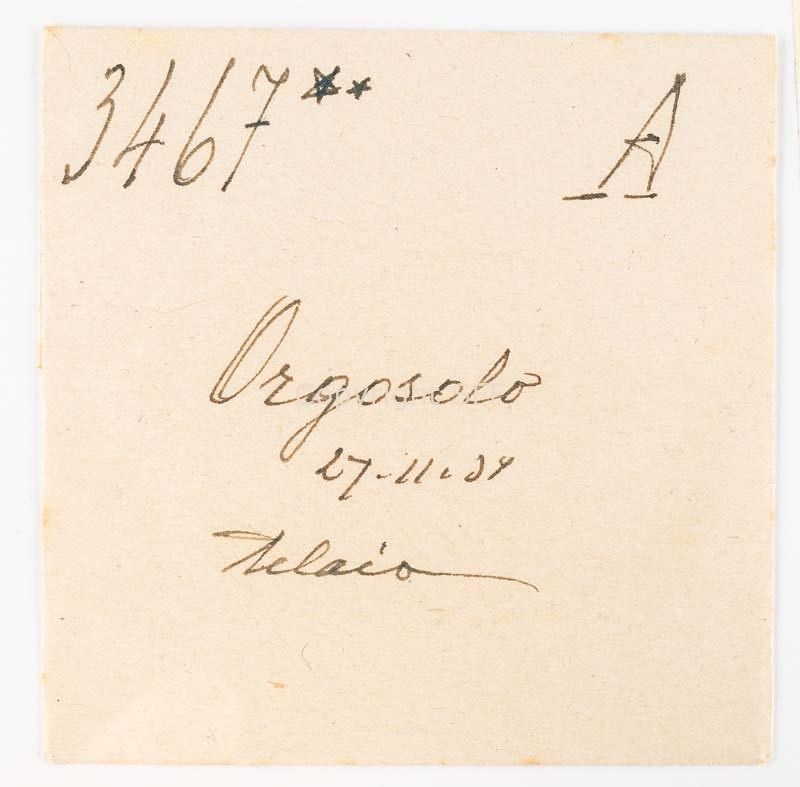 3467** A
Orgosolo
27-11-34
Telaio